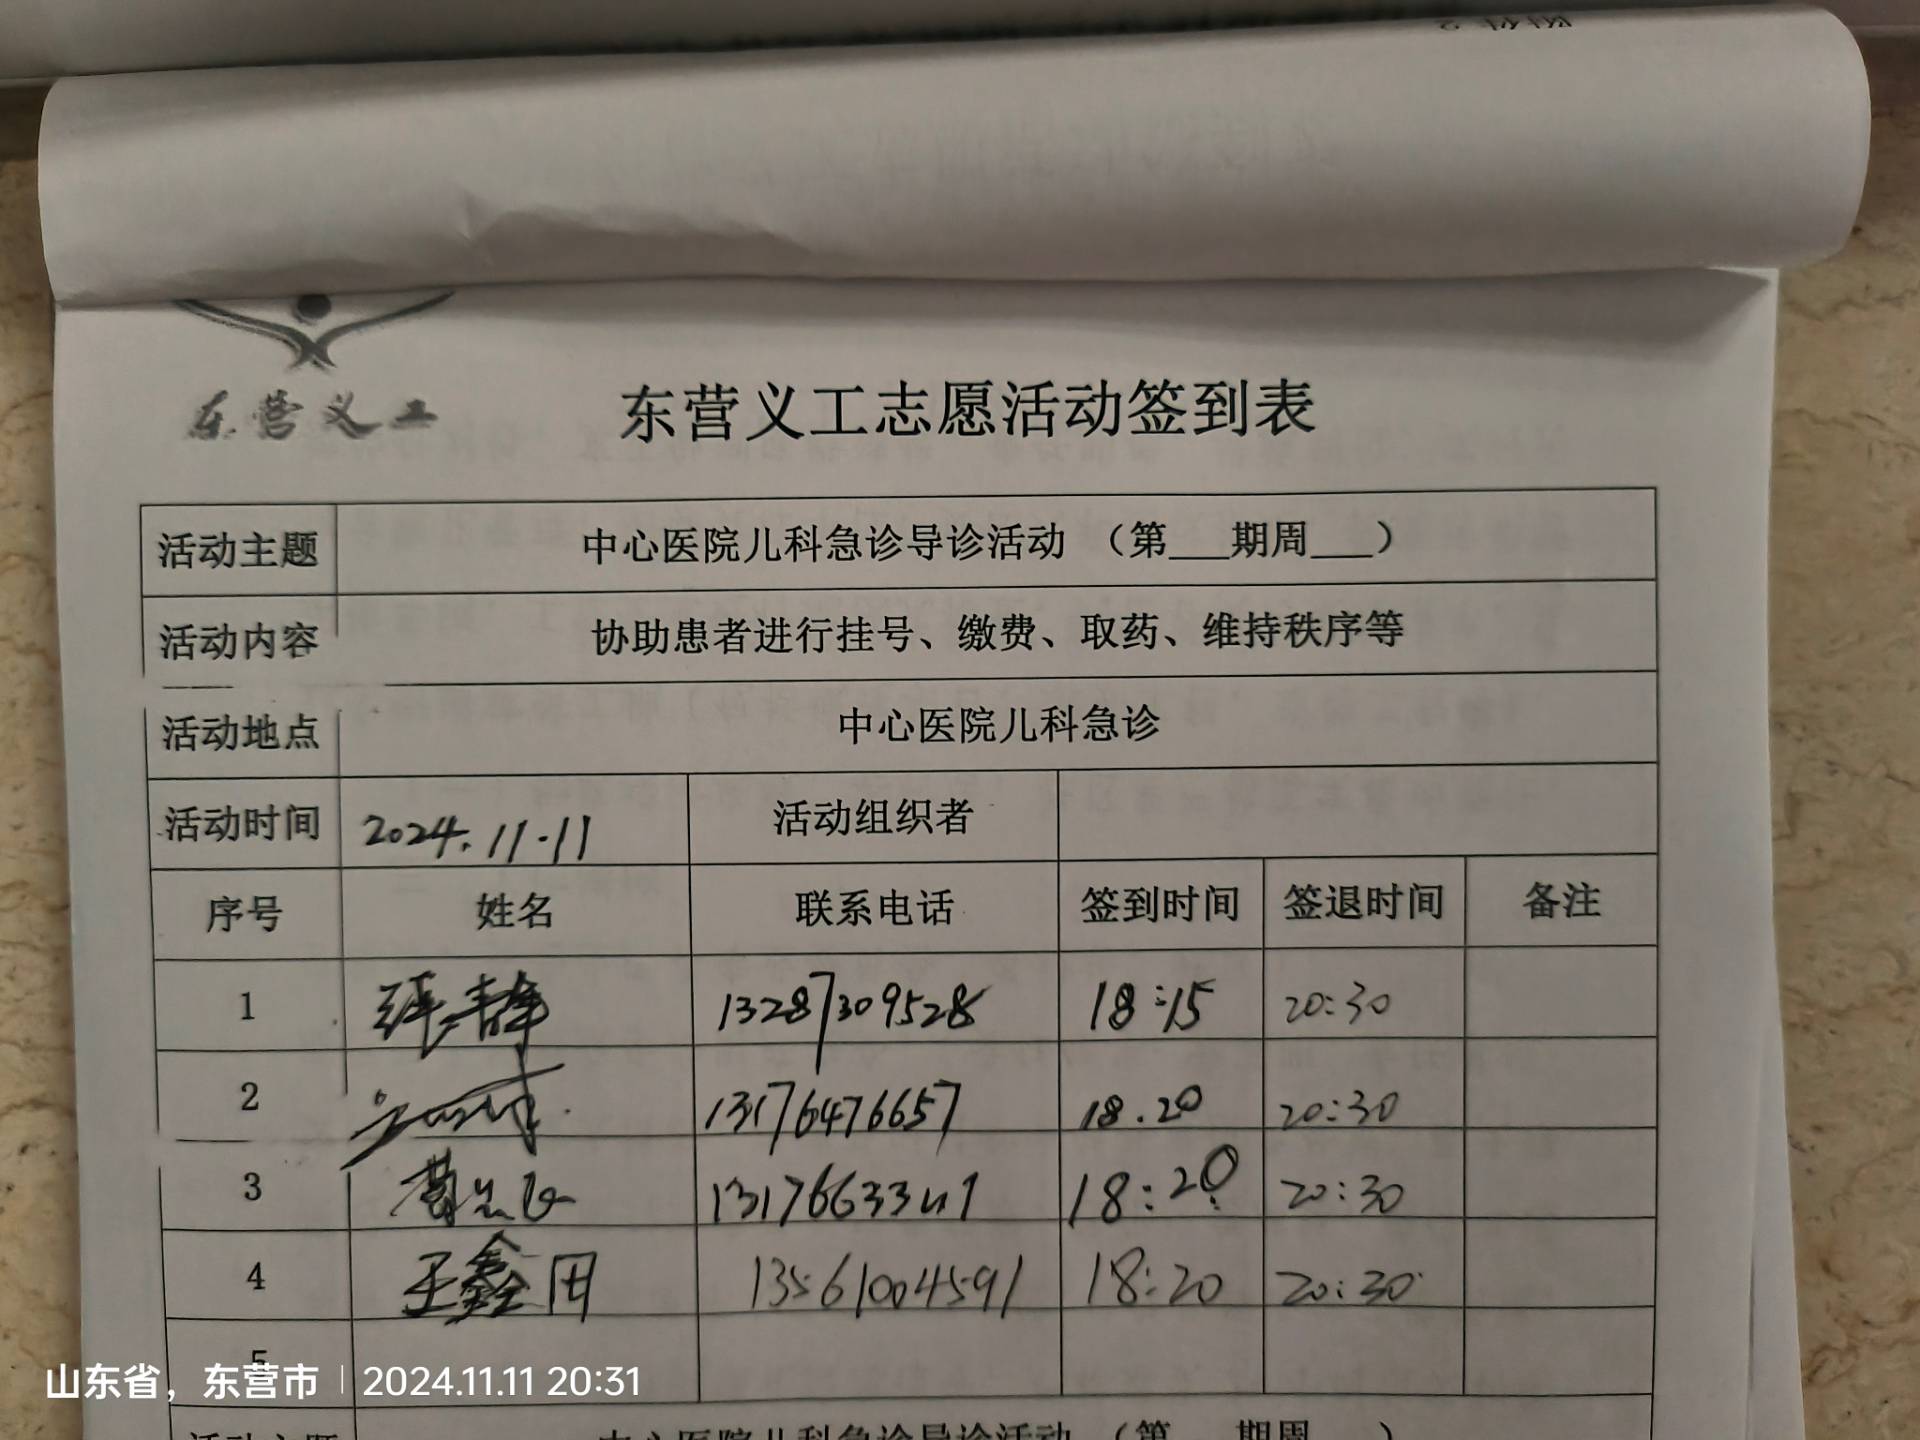 附件2
东营义工
东营义工志愿活动签到表
活动主题 中心医院儿科急诊导诊活动（第___期周___）
活动内容 协助患者进行挂号、缴费、取药、维持秩序等
活动地点 中心医院儿科急诊
活动时间 2024.11.11 活动组织者
序号 姓名 联系电话 签到时间 签退时间 备注
1 13287309528 18:15 20:30
2 13176476657 18.20 20:30
3 18:20 20:30
4 王鑫田 13561004591 18:20 20:30
5
山东省，东营市 2024.11.11 20:31
活动主题 中心医院儿科急诊导诊活动（第___期周___）